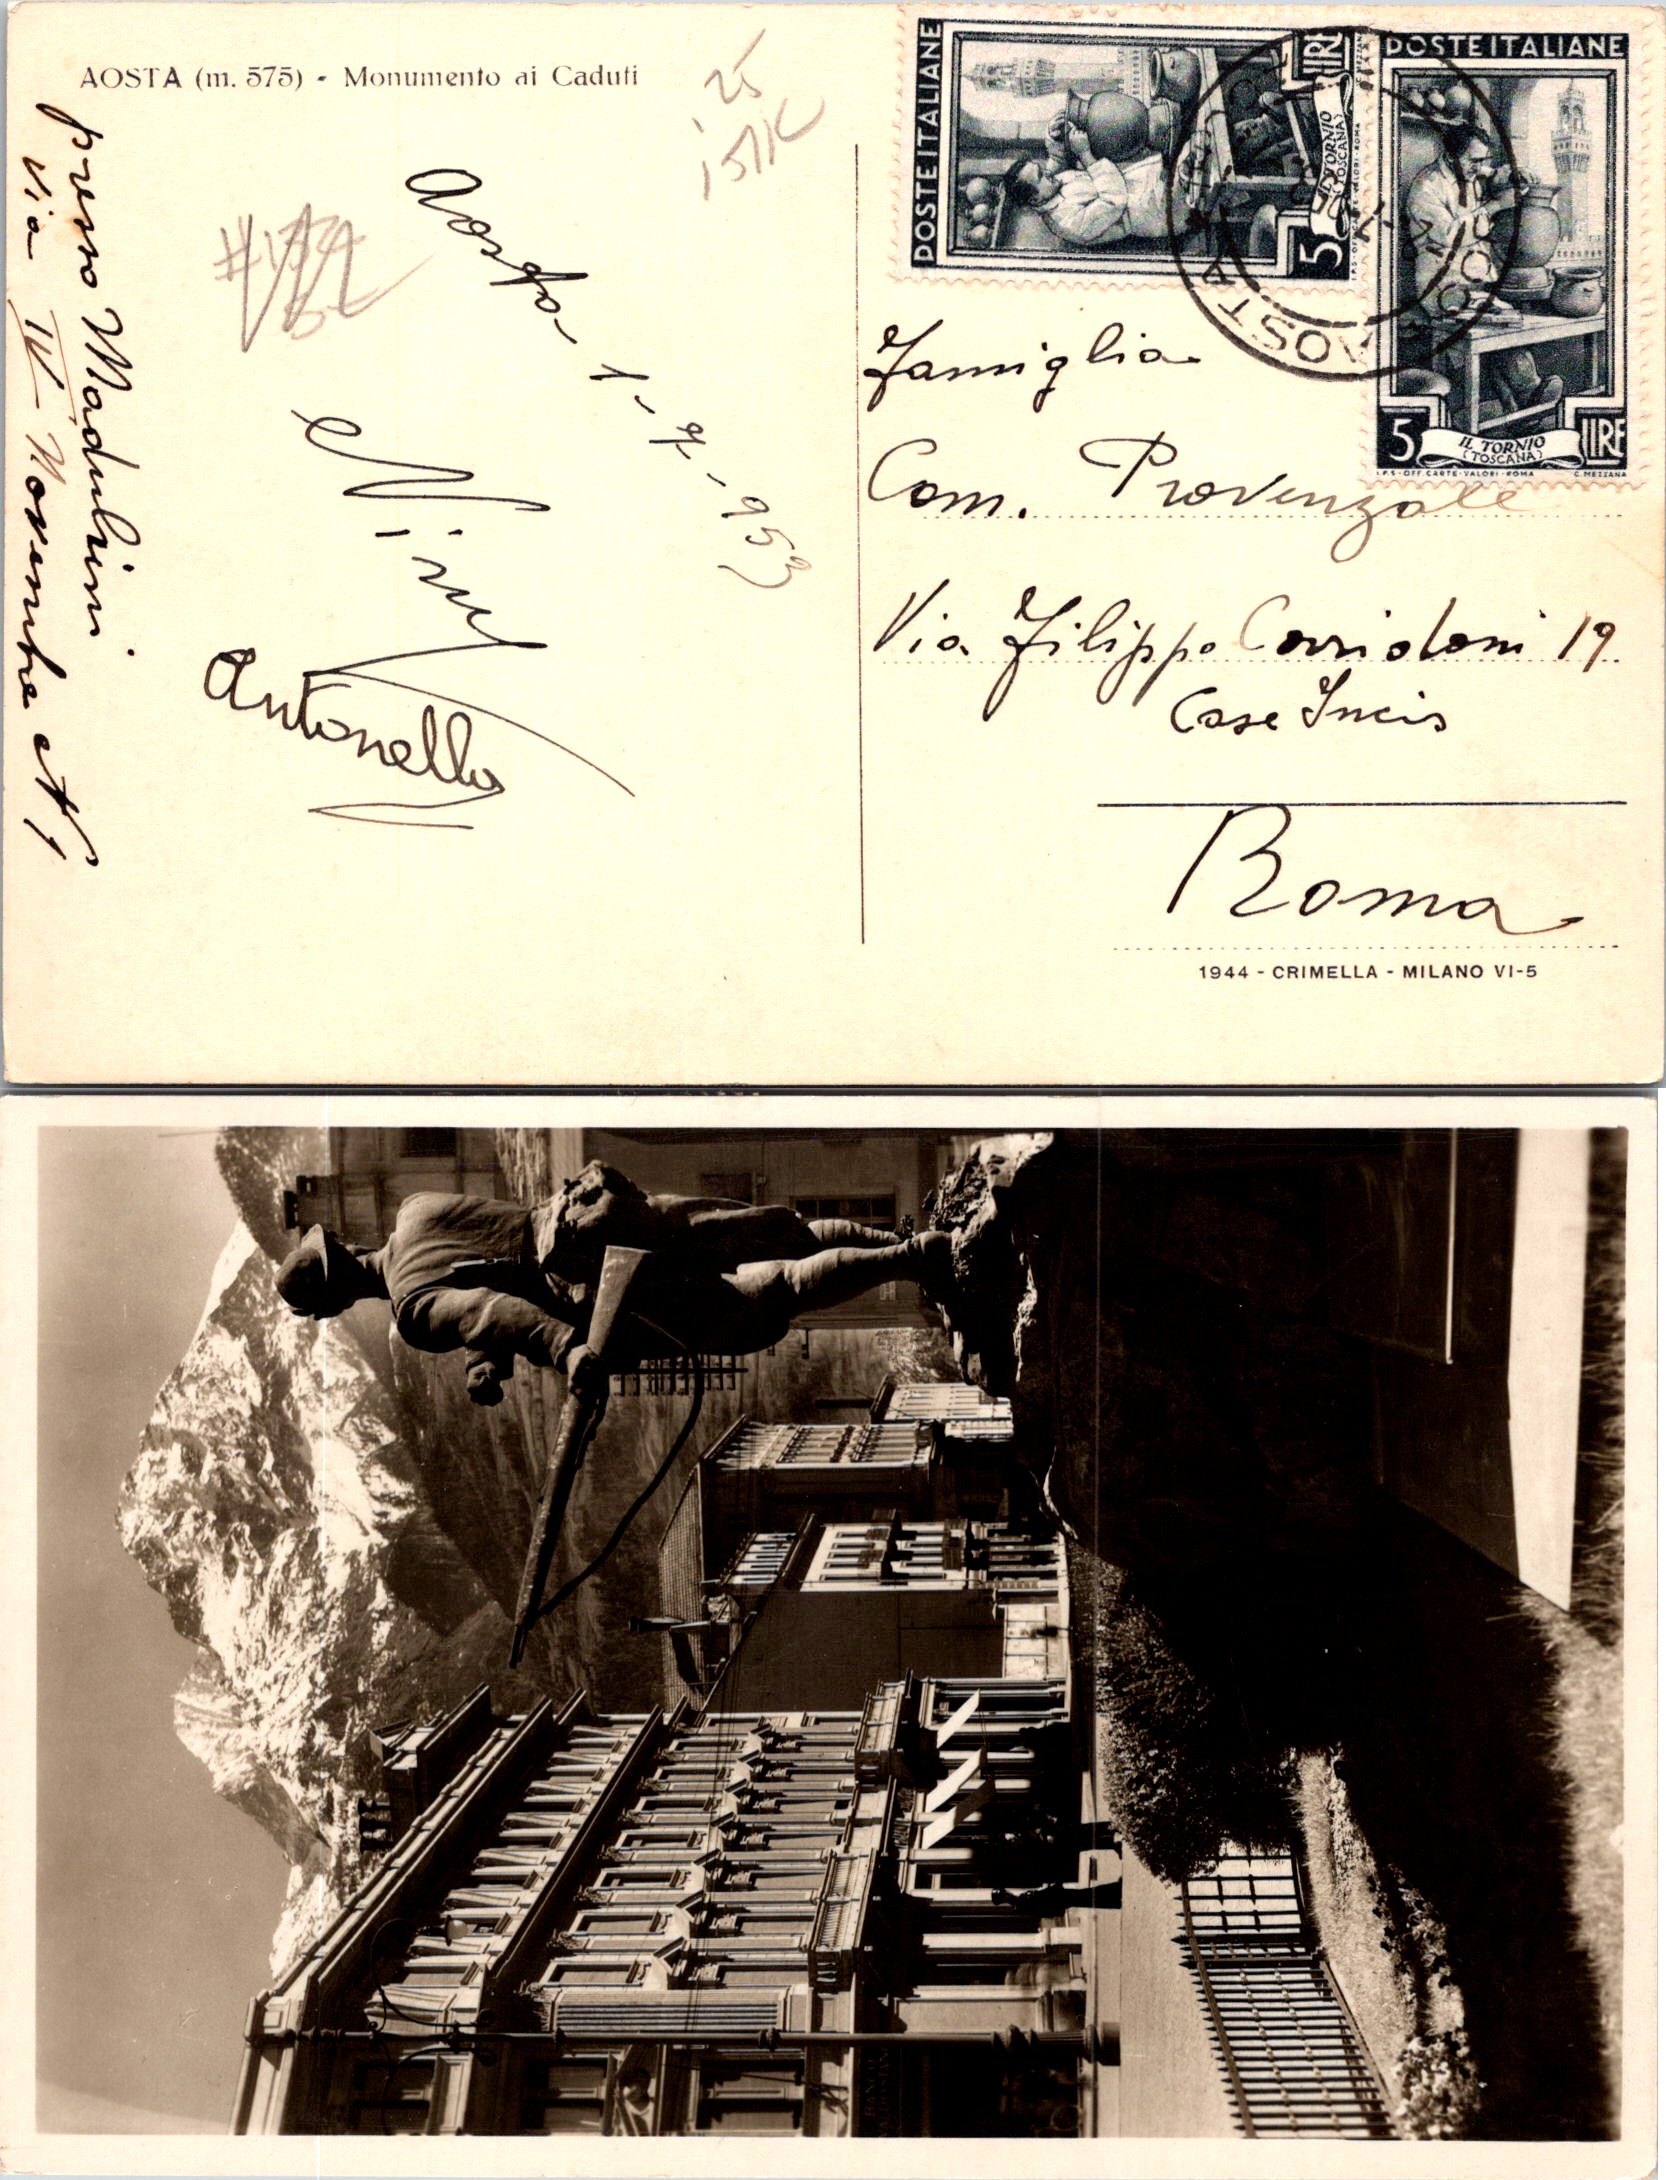 AOSTA (m. 575) - Monumento ai Caduti
presso Madulini
Via IV Novembre N 1
Aosta - 1 - 7 - 953
Nino
Antonella
POSTE ITALIANE
5 LIRE
IL TORNIO
(TOSCANA)
POSTE ITALIANE
5 LIRE
IL TORNIO
(TOSCANA)
I.P.S - OFF. CARTE - VALORI - ROMA C. MEZZANA
AOSTA
Famiglia
Com. Provenzale
Via Filippo Corridoni 19
Case Incis
Roma
1944 - CRIMELLA - MILANO VI-5